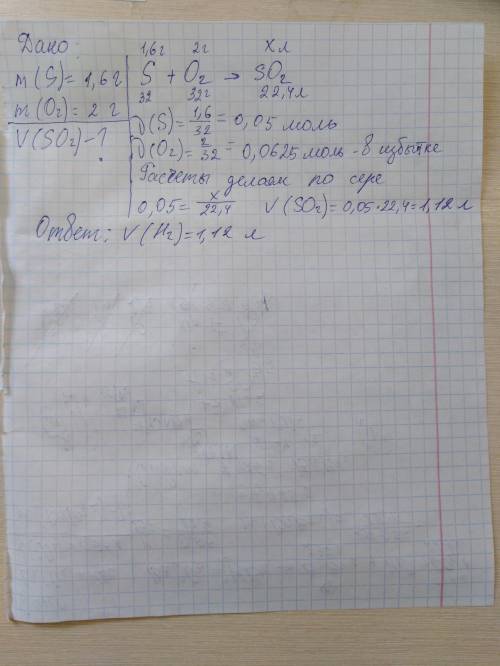 Дано:
1,6г 2г x л
m(S)=1,6г S + O₂ → SO₂
32 32г 22,4л
m(O₂)=2 г ν(S)=1,6/32=0,05 моль
V(SO₂)-? ν(O₂)=2/32=0,0625 моль - в избытке
Расчеты делаем по сере
0,05=x/22,4 V(SO₂)=0,05·22,4=1,12 л
Ответ: V(H₂)=1,12 л